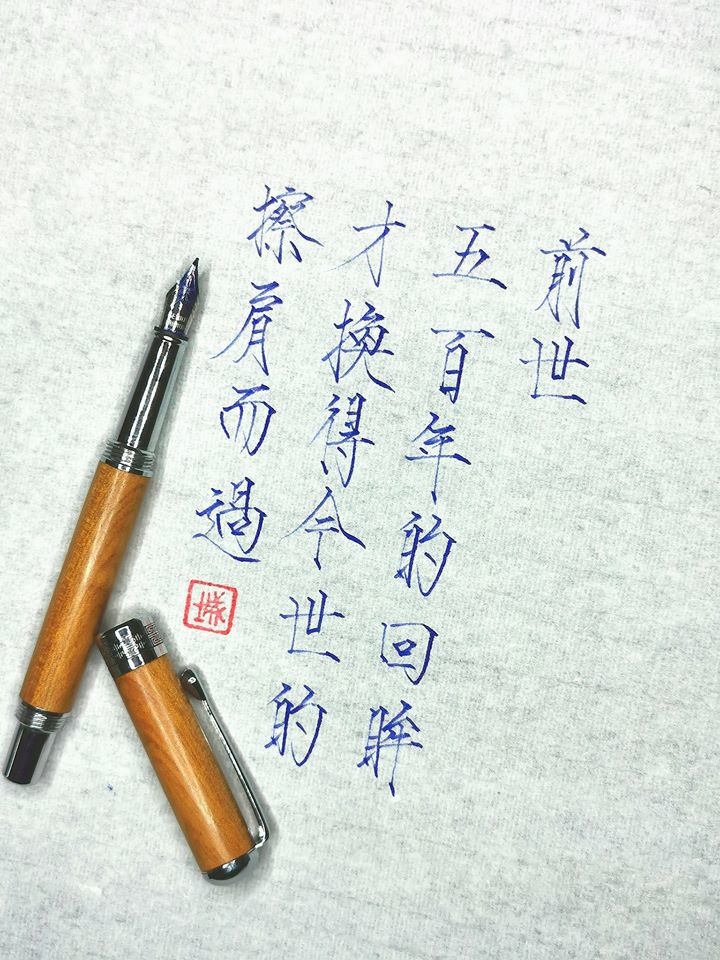 前世
五百年的回眸
才換得今世的
擦肩而過